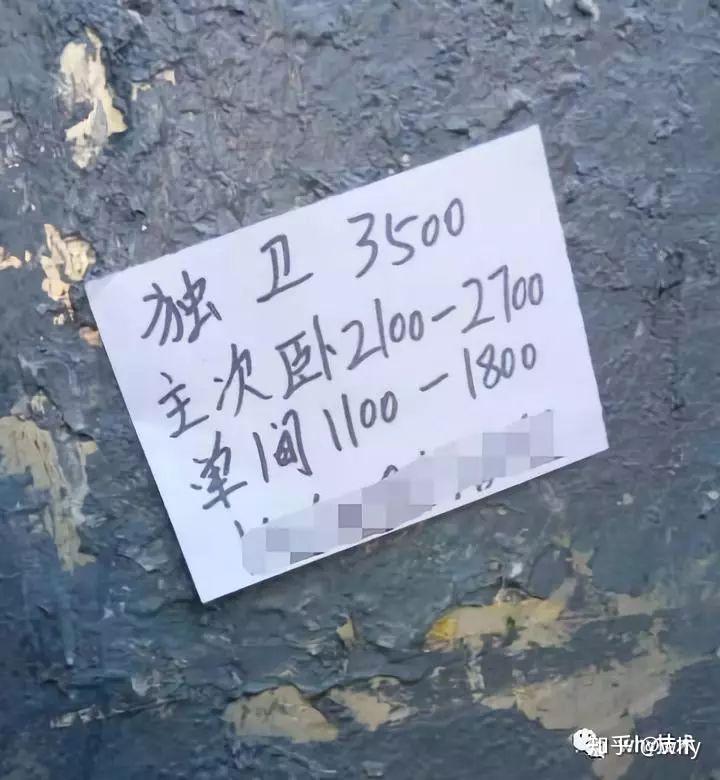 独卫 3500
主次卧2100-2700
单间1100-1800